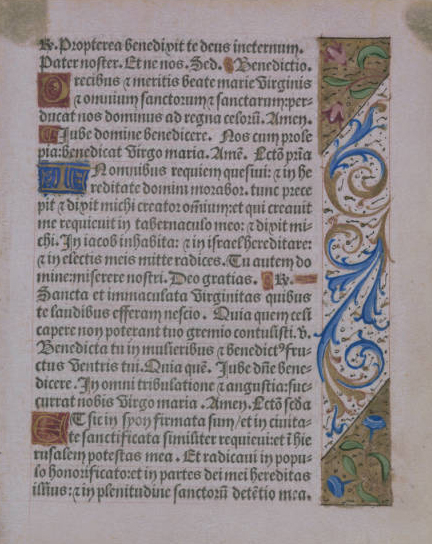 ℟. Propterea benedixit te deus ineternum.
Pater noster. Et ne nos. Sed. Benedictio.
Precibus ⁊ meritis beate marie virginis
⁊ omnium sanctorum ⁊ sanctarum: per-
ducat nos dominus ad regna celorū. Amen.
Iube domine benedicere. Nos cum prole
pia: benedicat virgo maria. Amē. Lectō pria
IN omnibus requiem quesiui: ⁊ in he
reditate domini morabor. tunc prece
pit ⁊ dixit michi creator om̄ium: et qui creauit
me requieuit in tabernaculo meo: ⁊ dixit mi-
chi. In iacob inhabita: ⁊ in israel hereditare:
⁊ in electis meis mitte radices. Tu autem do
mine: miserere nostri. Deo gratias. ℟.
Sancta et immaculata virginitas quibus
te laudibus efferam nescio. Quia quem celi
capere non poterant tuo gremio contulisti. v.
Benedicta tu in mulieribus ⁊ benedictꝰ fru-
ctus ventris tui. Quia quē. Iube dn̄e bene-
dicere. In omni tribulatione ⁊ angustia: suc-
currat nobis virgo maria. Amen. Lectō scd̄a
ET sic in syon firmata sum / et in ciuita-
te sanctificata similiter requieui: et ī hie
rusalem potestas mea. Et radicaui in popu-
lo honorificato: et in partes dei mei hereditas
illius: ⁊ in plenitudine sanctorū detētio mea.